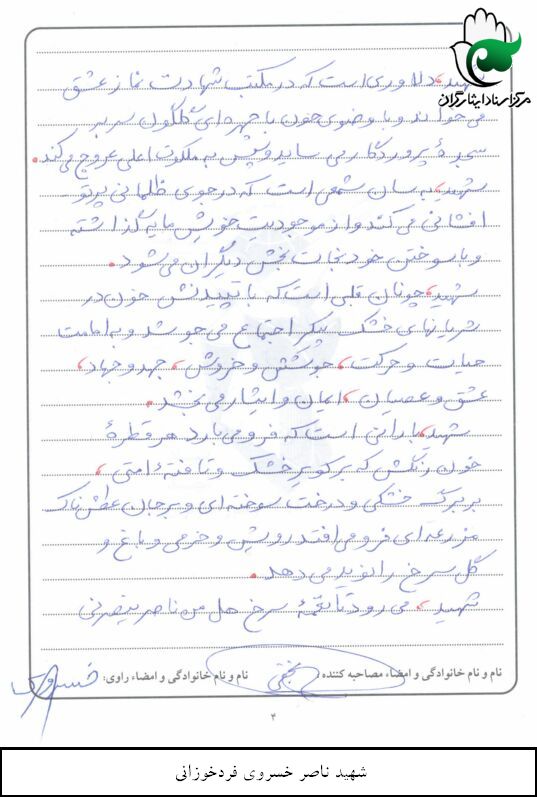 مرکز اسناد ایثارگران
شهید، دلاوری است که در مکتب شهادت نماز عشق
می خواند و با وضوی خون با چهره ای گلگون سر به
سجدهٔ پروردگار می ساید و به ملکوت اعلی عروج می کند.
شهید، به سان شمعی است که در جوی ظلمانی پرتو
افشانی می کند و از موجودیت خویش مایه گذاشته
و با سوختن خود نجات بخش دیگران می شود.
شهید، چونان قلبی است که با تپیدنش خون در
شریانهای خشک پیکر اجتماع می جوشد و به امامت
حیات و حرکت، جوشش و خروش، جهد و جهاد،
عشق و عصیان، ایمان و ایثار می بخشد.
شهید، بارانی است که فرو می بارد هر قطرهٔ
خون رنگش که بر کویر خشک و تافتهٔ امتی،
بر برگ خشکی و درخت سوخته ای و بر جان عطشناک
مزرعه ای فرو می افتد رویش و خرمی و باغ و
گل سرخ را نوید می دهد.
شهید، می رود تا سرخ هل من ناصر ینصرنی
نام و نام خانوادگی و امضاء مصاحبه کننده: نام و نام خانوادگی و امضاء راوی: خسروی
۴
شهید ناصر خسروی فردخوزانی